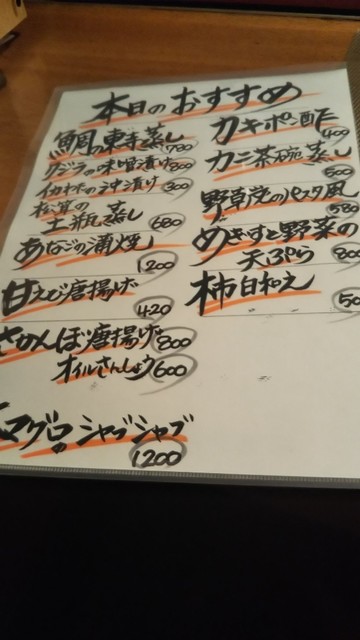 本日のおすすめ
鯛の東寺蒸し 780
クジラの味噌漬け 800
イカワタの沖漬け 300
松茸の
土瓶蒸し 680
あなごの蒲焼 1200
甘えび唐揚げ 420
さかんぼ唐揚げ 800
オイルさんしょう 600
マグロのシャブシャブ
1200
カキポン酢 400
カニ茶碗蒸し 500
パスタ風 580
めぎすと野菜の
天ぷら 800
柿白和え